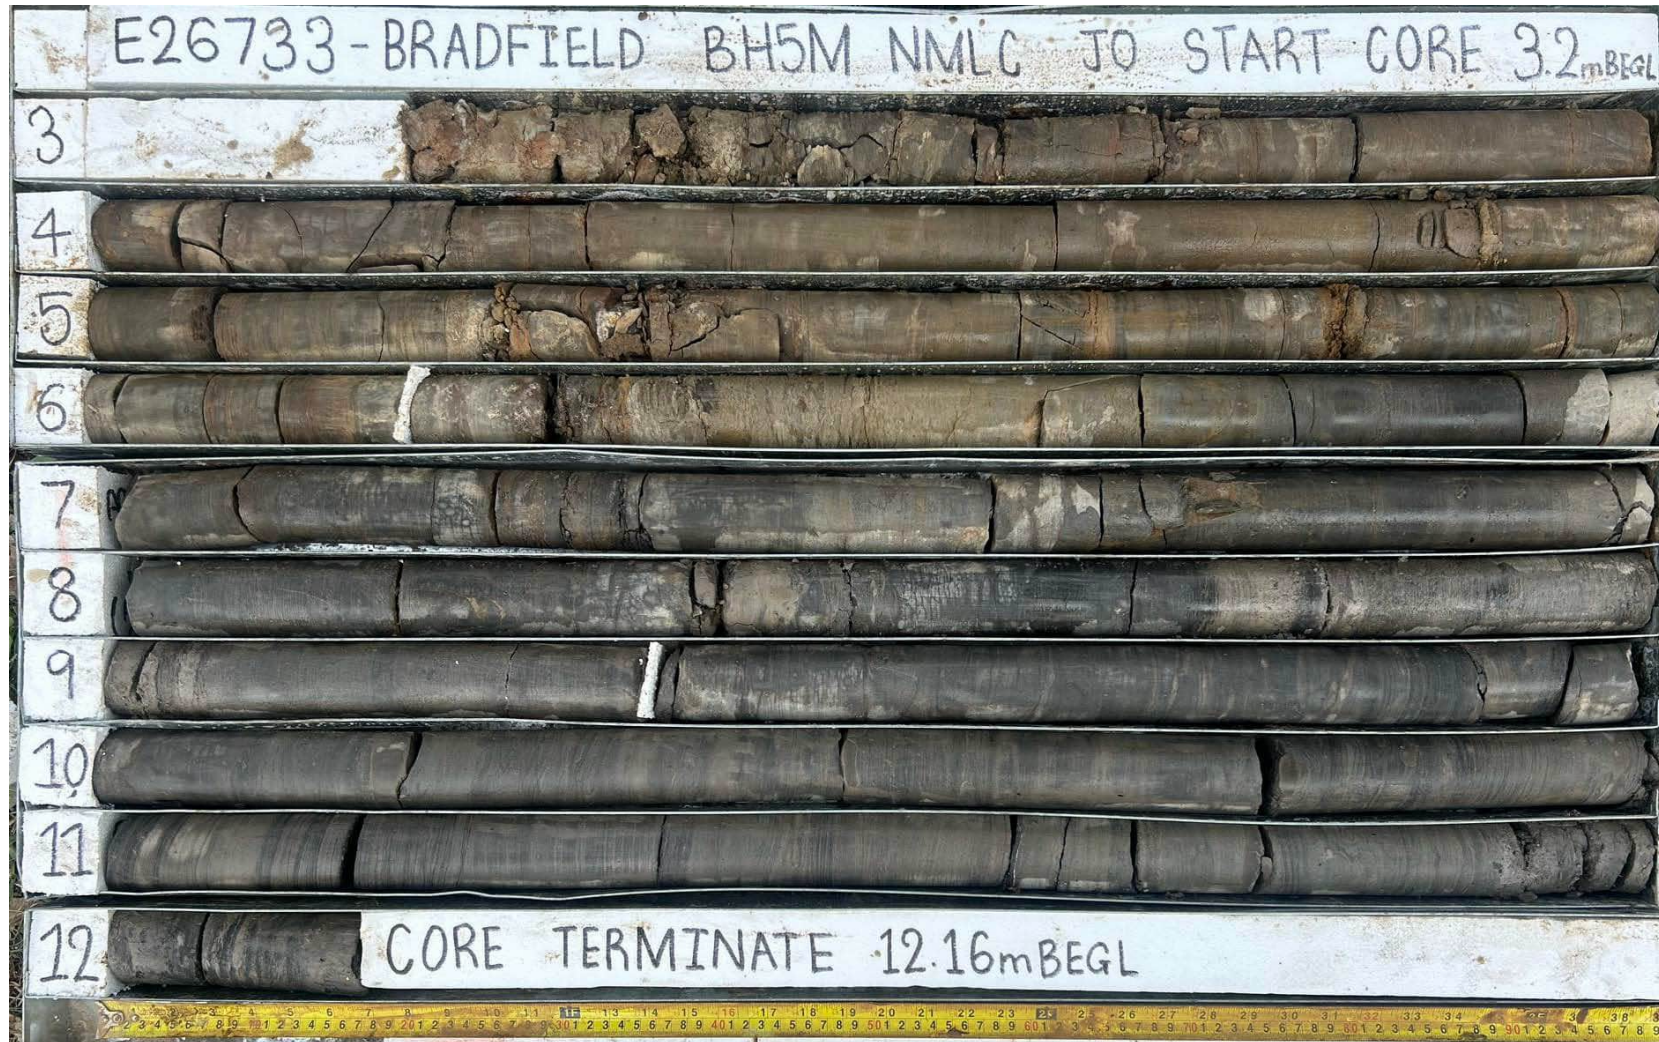 E26733-BRADFIELD BH5M NMLC JO START CORE 3.2mBEGL
3
4
5
6
7
8
9
10
11
12 CORE TERMINATE 12.16mBEGL